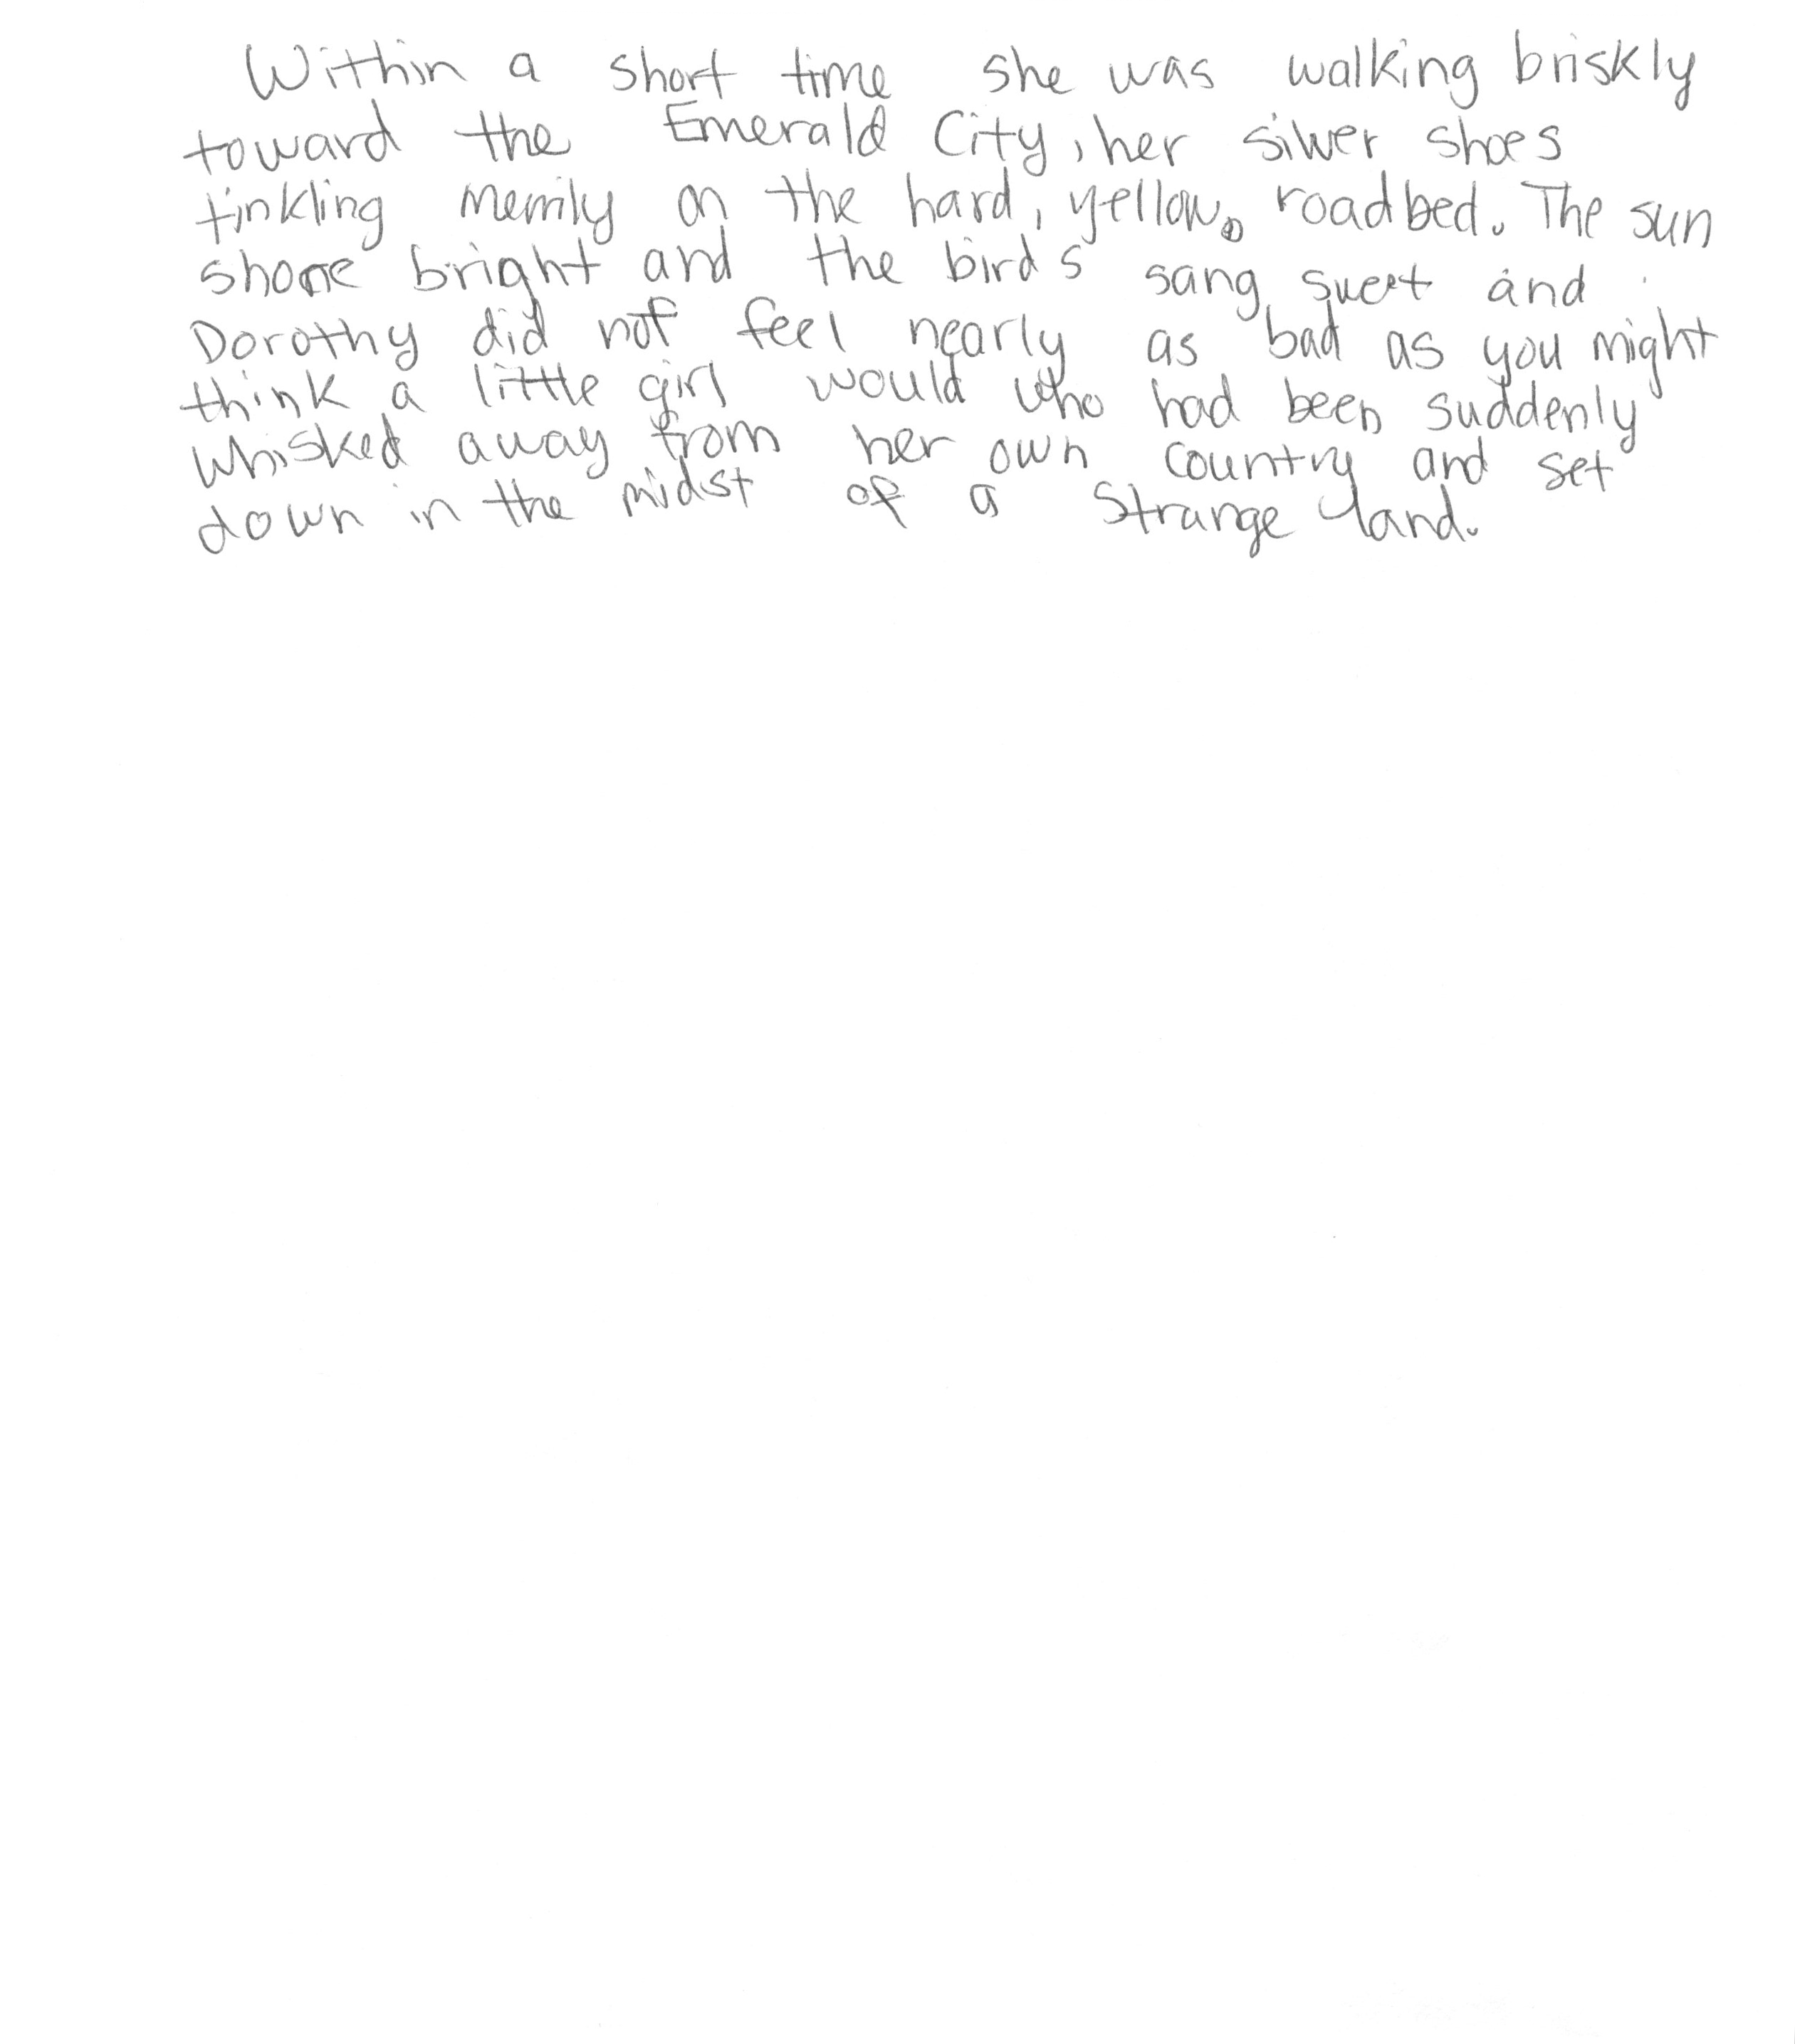 Within a short time she was walking briskly
toward the Emerald City, her silver shoes
tinkling merrily on the hard, yellow roadbed. The sun
shone bright and the birds sang sweet and
Dorothy did not feel nearly as bad as you might
think a little girl would who had been suddenly
whisked away from her own country and set
down in the midst of a strange land.